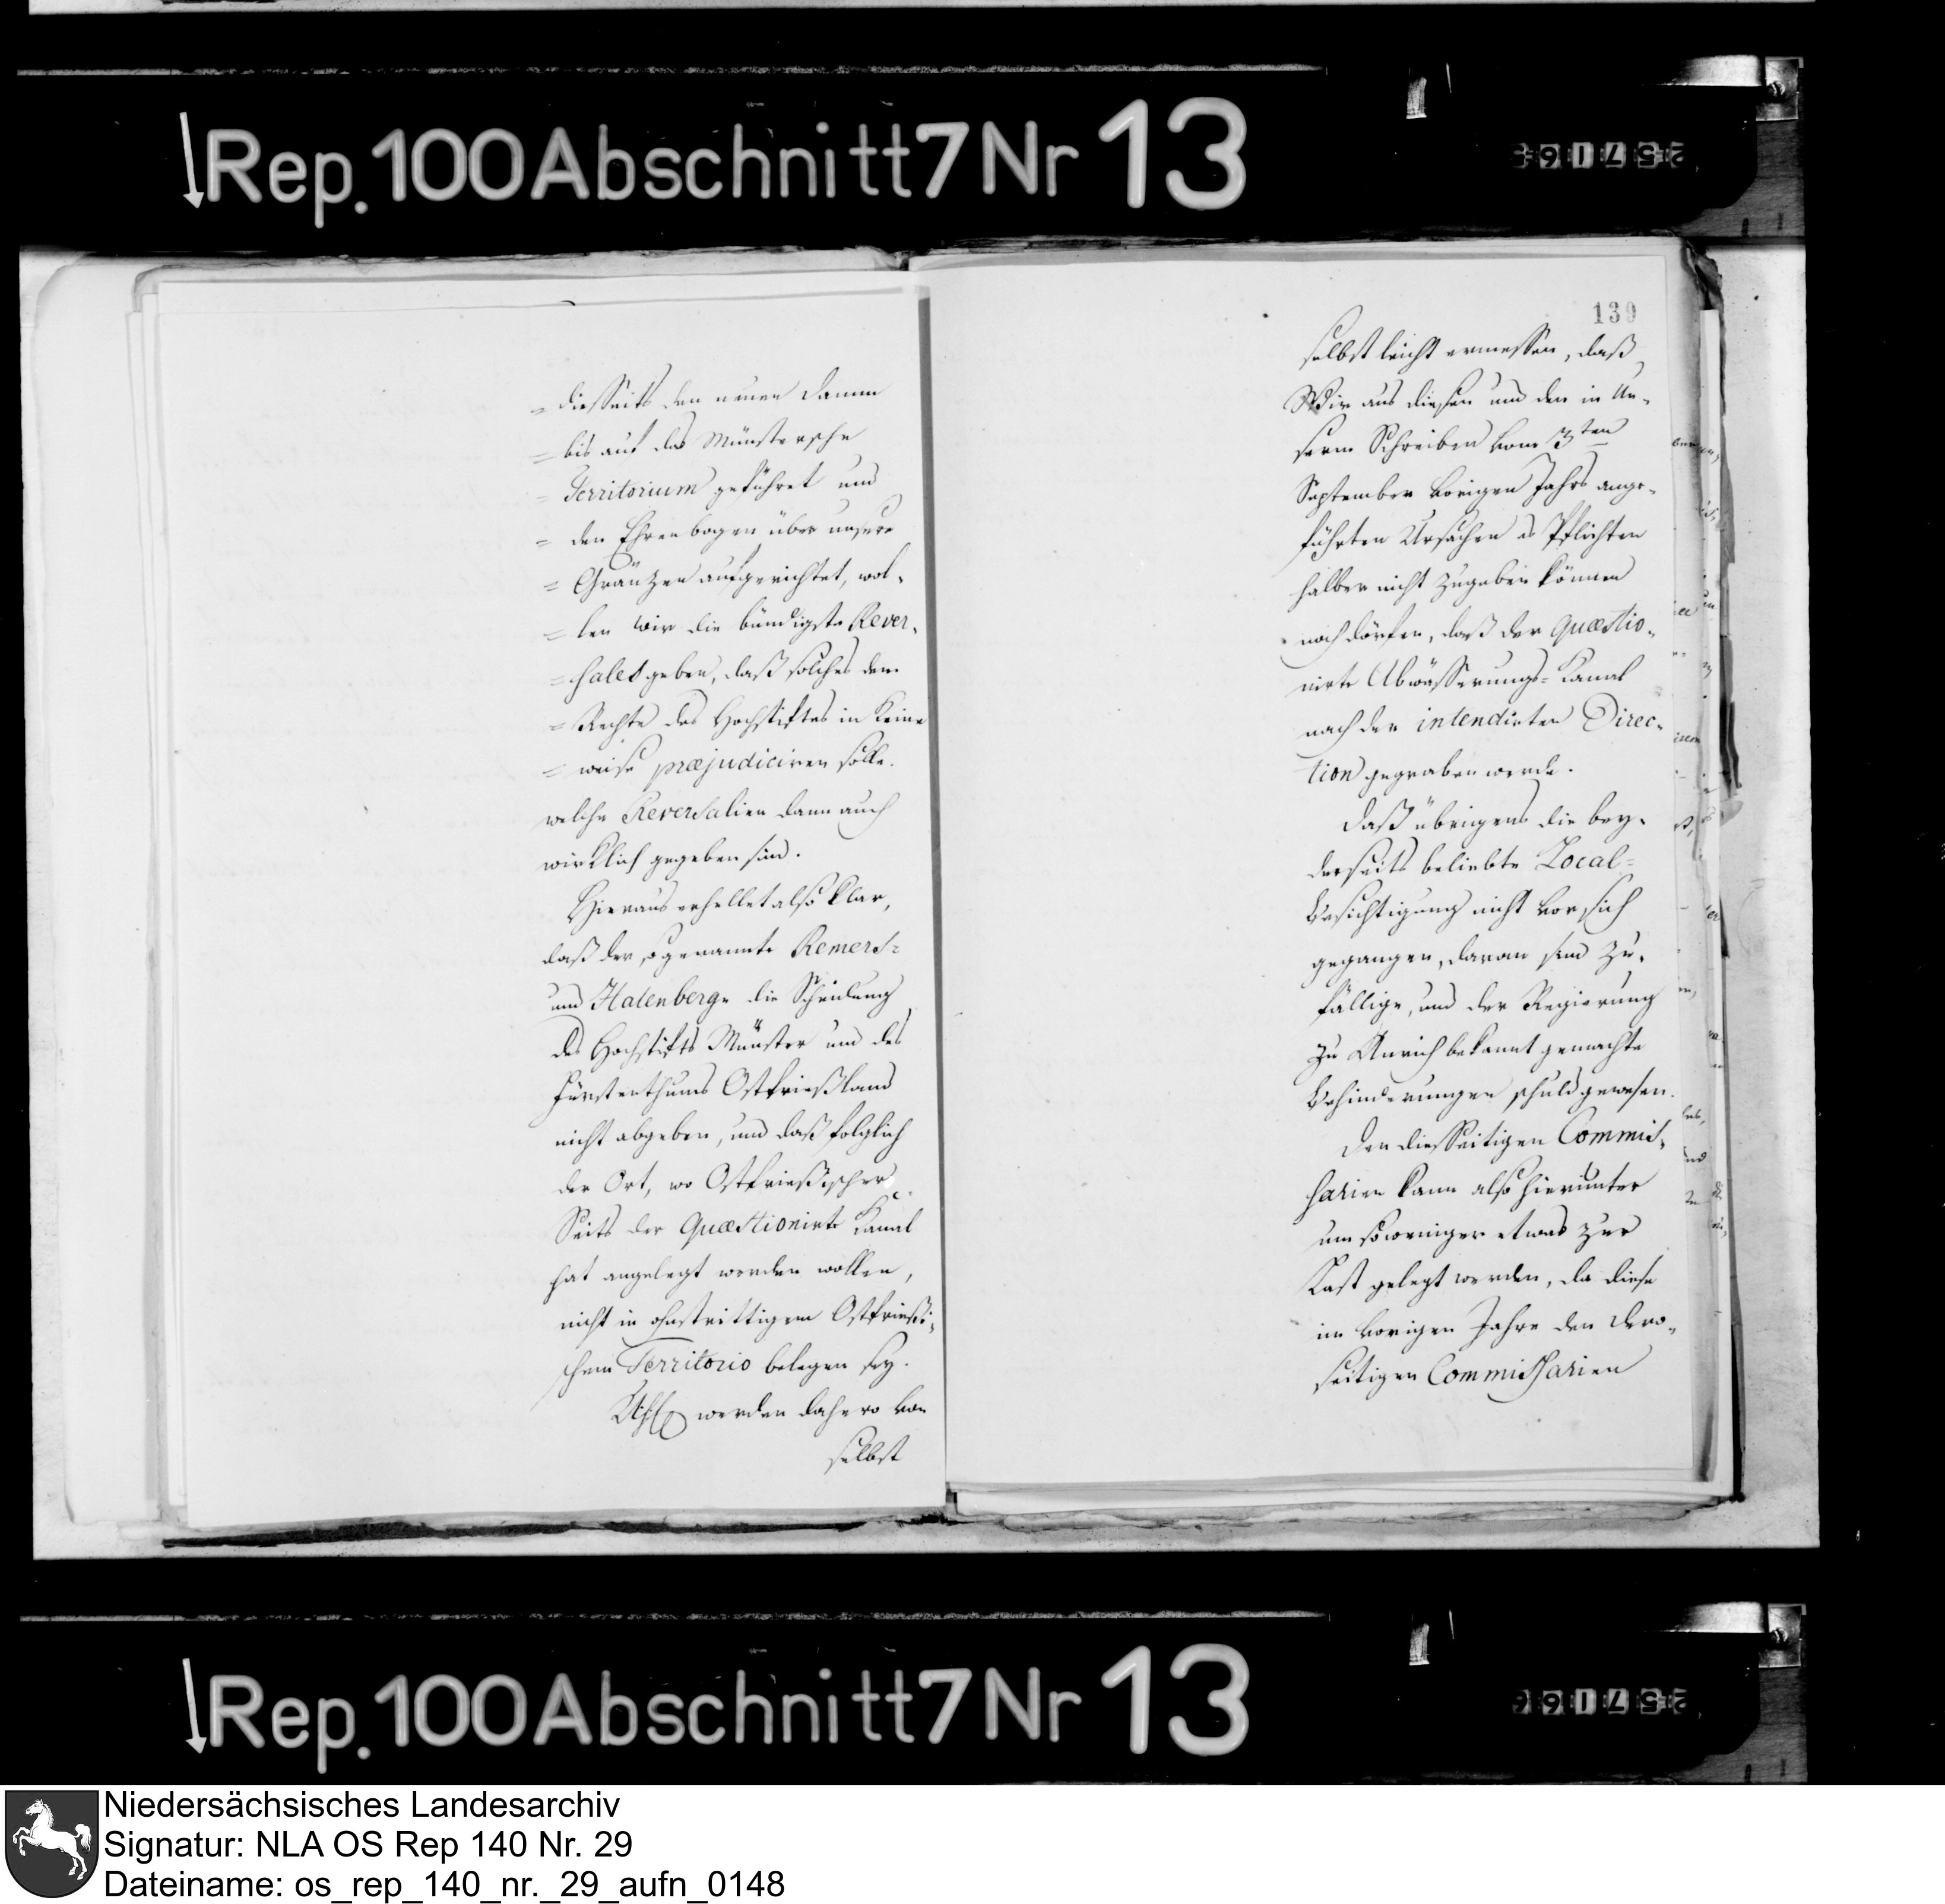 Rep. 100 Abschnitt 7 Nr 13
= diesseits den neuen Damm
= bis auf das Münstersche
= Territorium geführet und
= den Ehrenbogen über unsere
= Gränzen aufgerichtet, wol-
= len wir die bündigste Rever-
= sales geben, daß solches dem
= Rechte des Hochstiftes in keine
= weise præjudiciren solle.
welche Reversalien dann auch
wirklich gegeben sind.
Hieraus erhellet also klar,
daß der sogenannte Remers-
und Hatenberge die Scheidung
des Hochstifts Münster und des
Fürstenthums Ostfrießland
nicht abgeben, und daß folglich
der Ort, wo Ostfrießischer
Seits der quæstionirte Kanal
hat angelegt werden wollen,
nicht in ohnstrittigem Ostfrießi-
schem Territorio belegen sey.
werden dahero von
selbst
139
selbst leicht ermessen, daß
Wir aus diesen und den in Un-
serm Schreiben vom 3ten
September vorigen Jahrs ange-
führten Ursachen es Pflichten
halber nicht zugeben können
noch dörfen, daß der quæstio-
nirte Abwässerungs-Kanal
nach der intendirten Direc-
tion gegraben werde.
Daß übrigens die bey-
derseits beliebte Local-
Besichtigung nicht vor sich
gegangen, daran sind zu-
fällige, und der Regierung
zu Aurich bekannt gemachte
Behinderungen schuld gewesen.
Den diesseitigen Commis-
sarien kann also hierunter
um soweniger etwas zur
Last gelegt werden, da diese
im vorigen Jahre den dero-
seitigen Commissarien
Rep. 100 Abschnitt 7 Nr 13
Niedersächsisches Landesarchiv
Signatur: NLA OS Rep 140 Nr. 29
Dateiname: os_rep_140_nr._29_aufn_0148